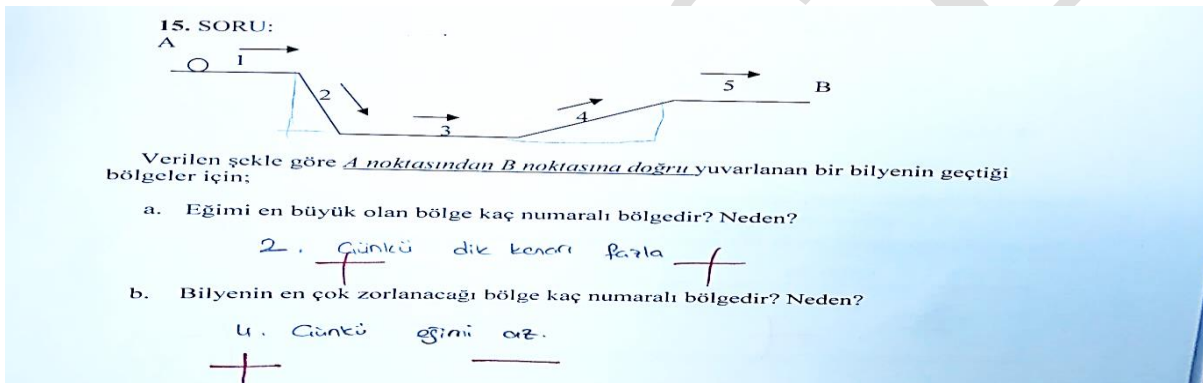 15. SORU:
A
1
2
3
4
5
B
Verilen şekle göre A noktasından B noktasına doğru yuvarlanan bir bilyenin geçtiği
bölgeler için;
a. Eğimi en büyük olan bölge kaç numaralı bölgedir? Neden?
2. Çünkü dik kenarı fazla
b. Bilyenin en çok zorlanacağı bölge kaç numaralı bölgedir? Neden?
4. Çünkü eğimi az.